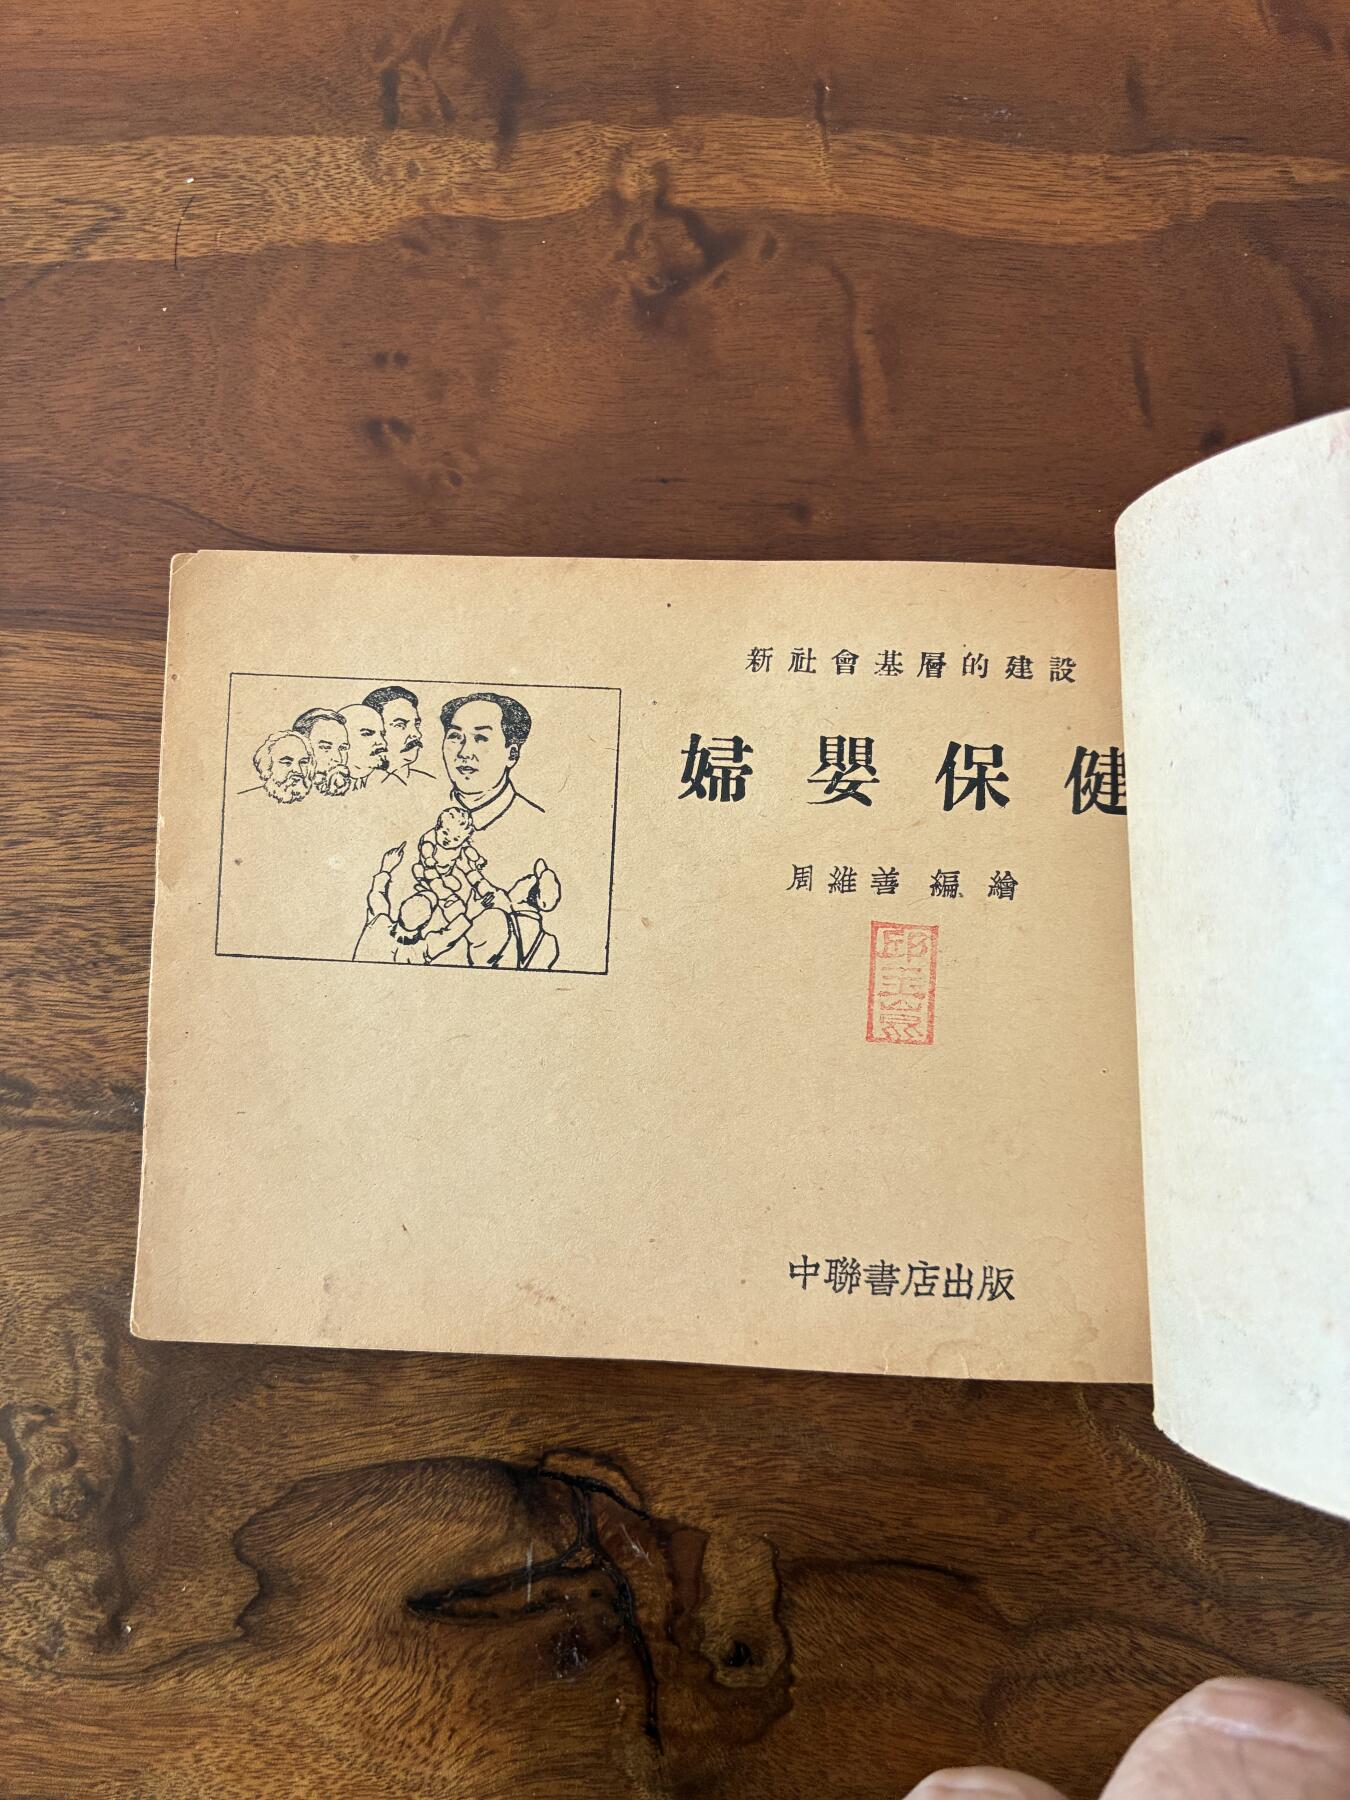 新社會基層的建設
婦嬰保健
周維善 編繪
中聯書店出版